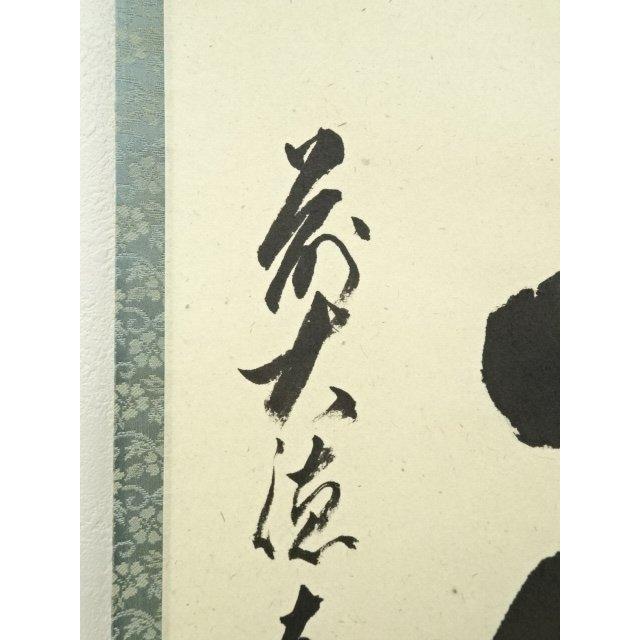 前大徳